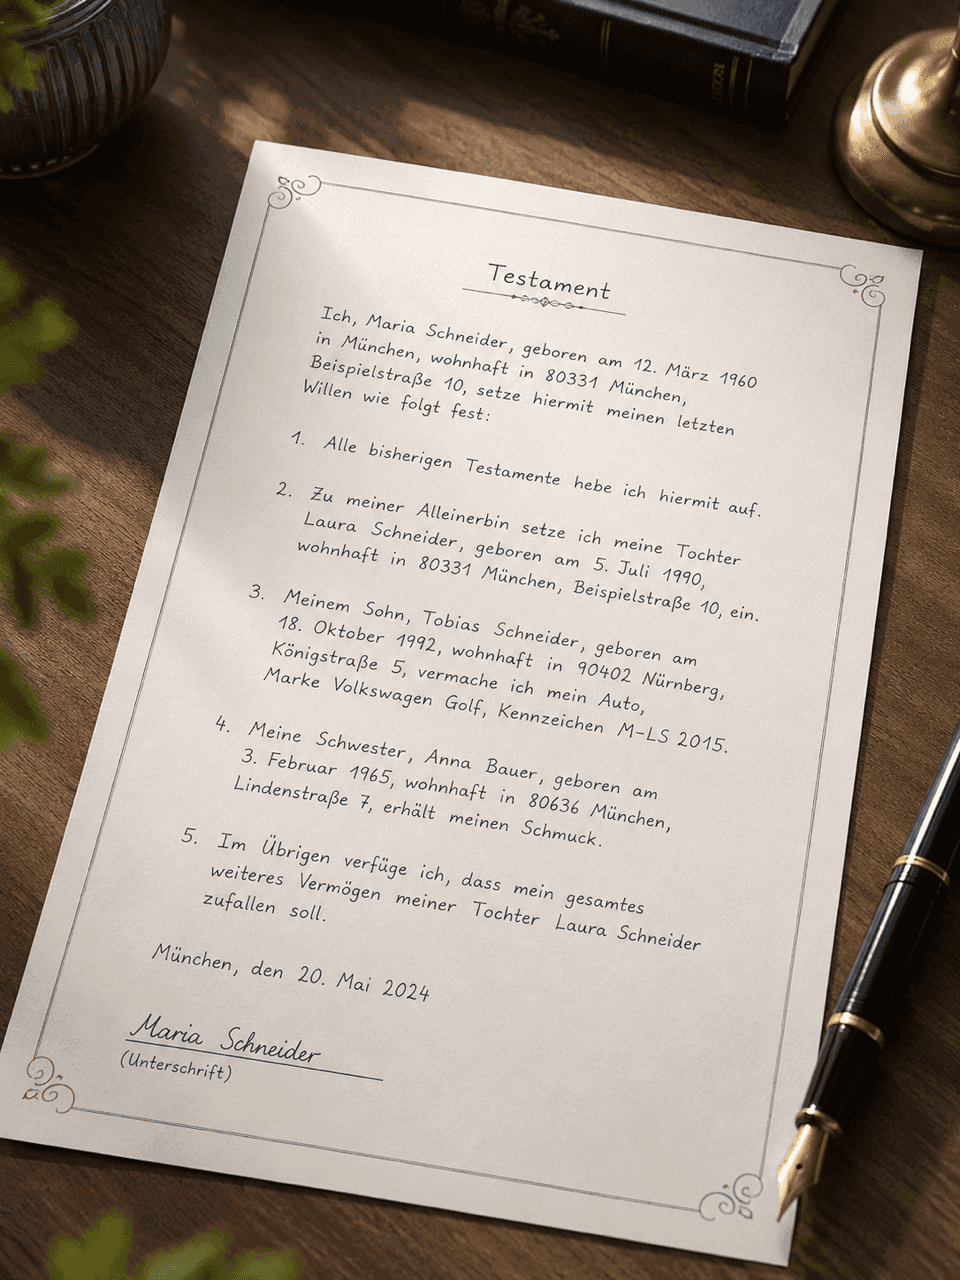 Testament
Ich, Maria Schneider, geboren am 12. März 1960
in München, wohnhaft in 80331 München,
Beispielstraße 10, setze hiermit meinen letzten
Willen wie folgt fest:
1. Alle bisherigen Testamente hebe ich hiermit auf.
2. Zu meiner Alleinerbin setze ich meine Tochter
Laura Schneider, geboren am 5. Juli 1990,
wohnhaft in 80331 München, Beispielstraße 10, ein.
3. Meinem Sohn, Tobias Schneider, geboren am
18. Oktober 1992, wohnhaft in 90402 Nürnberg,
Königstraße 5, vermache ich mein Auto,
Marke Volkswagen Golf, Kennzeichen M-LS 2015.
4. Meine Schwester, Anna Bauer, geboren am
3. Februar 1965, wohnhaft in 80636 München,
Lindenstraße 7, erhält meinen Schmuck.
5. Im Übrigen verfüge ich, dass mein gesamtes
weiteres Vermögen meiner Tochter Laura Schneider
zufallen soll.
München, den 20. Mai 2024
Maria Schneider
(Unterschrift)